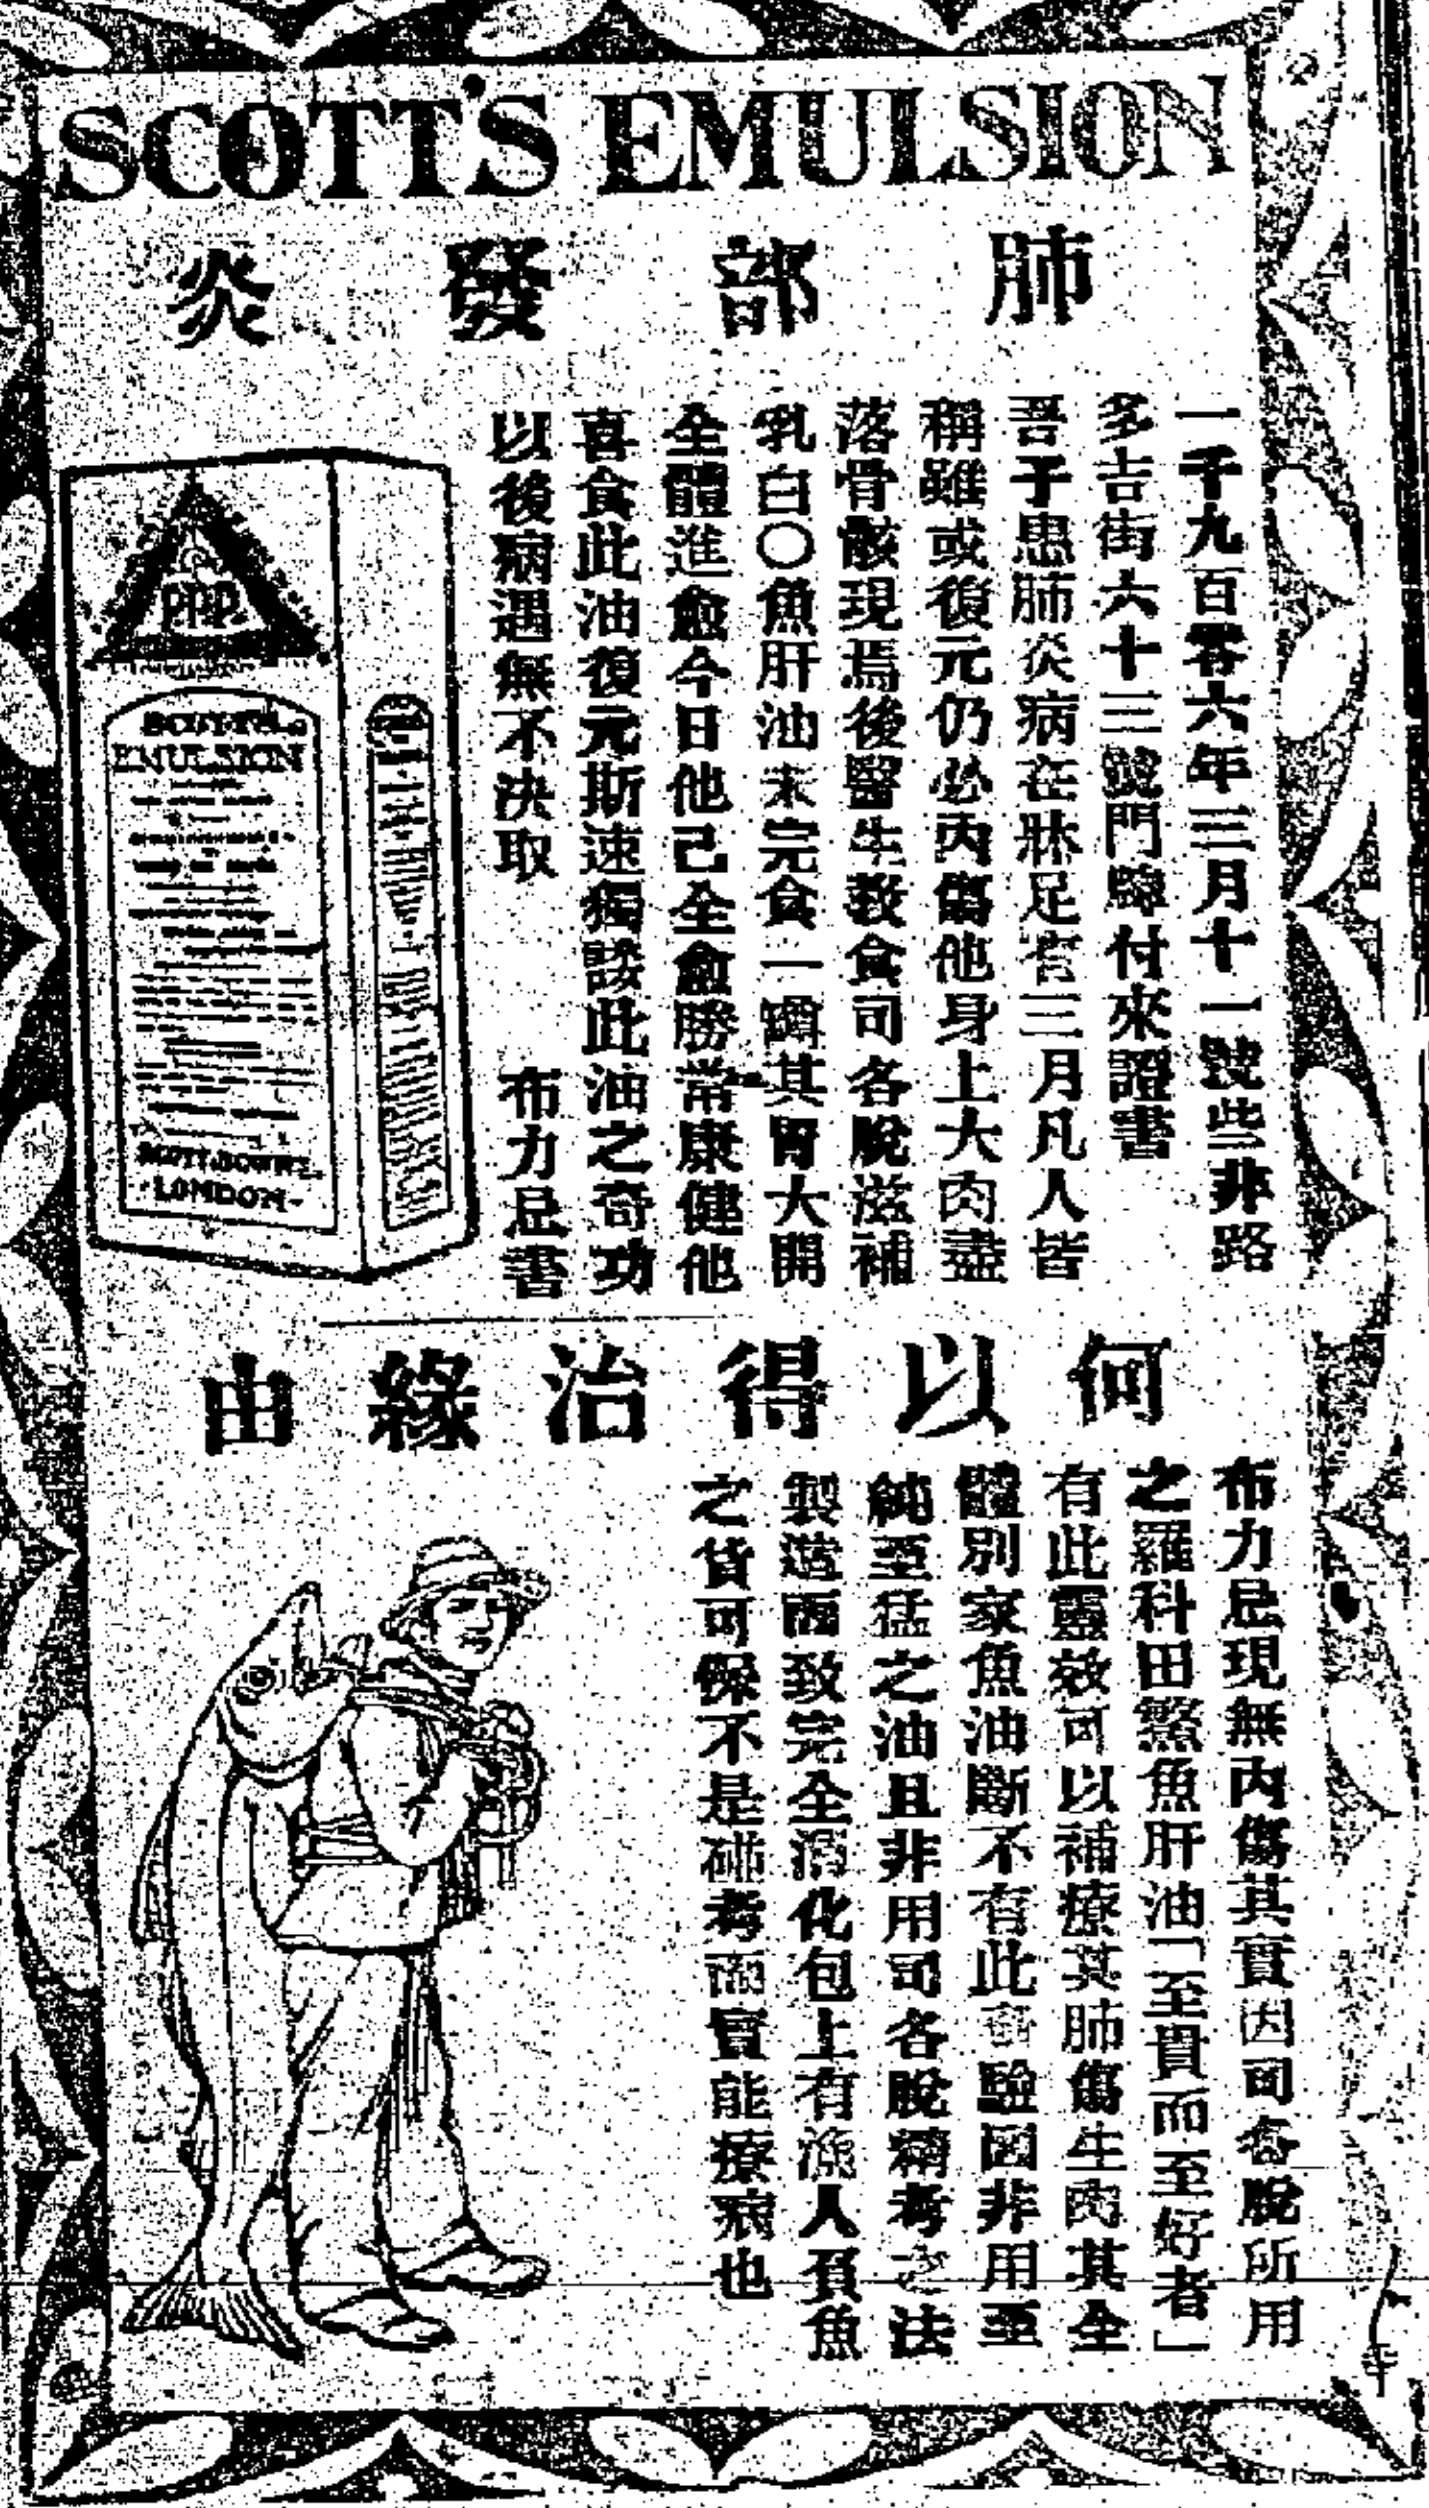 SCOTT'S EMULSION
肺部發炎
一千九百零六年三月十一號些非路
多吉街六十三號門牌付來證書
吾子患肺炎病在牀足有三月凡人皆
稱雖或後元仍必內傷他身上大肉盡
落骨骸現焉後醫生教食司各脫滋補
乳白〇魚肝油未完食一罇其胃大開
全體進愈今日他己全愈勝常康健他
喜食此油復元斯速獨談此油之奇功
以後病遇無不決取
布力忌書
PPP
SCOTT'S
EMULSION
SCOTT & BOWNE
LONDON
何以得治緣由
布力忌現無內傷其實因司各脫所用
之羅科田鰵魚肝油「至貴而至好者」
有此靈效可以補療其肺傷生肉其全
體別家魚油斷不有此 驗因非用至
純至猛之油且非用司各脫精考之法
製造而致完全消化包上有漁人負魚
之貨可保不是碰考而實能療病也